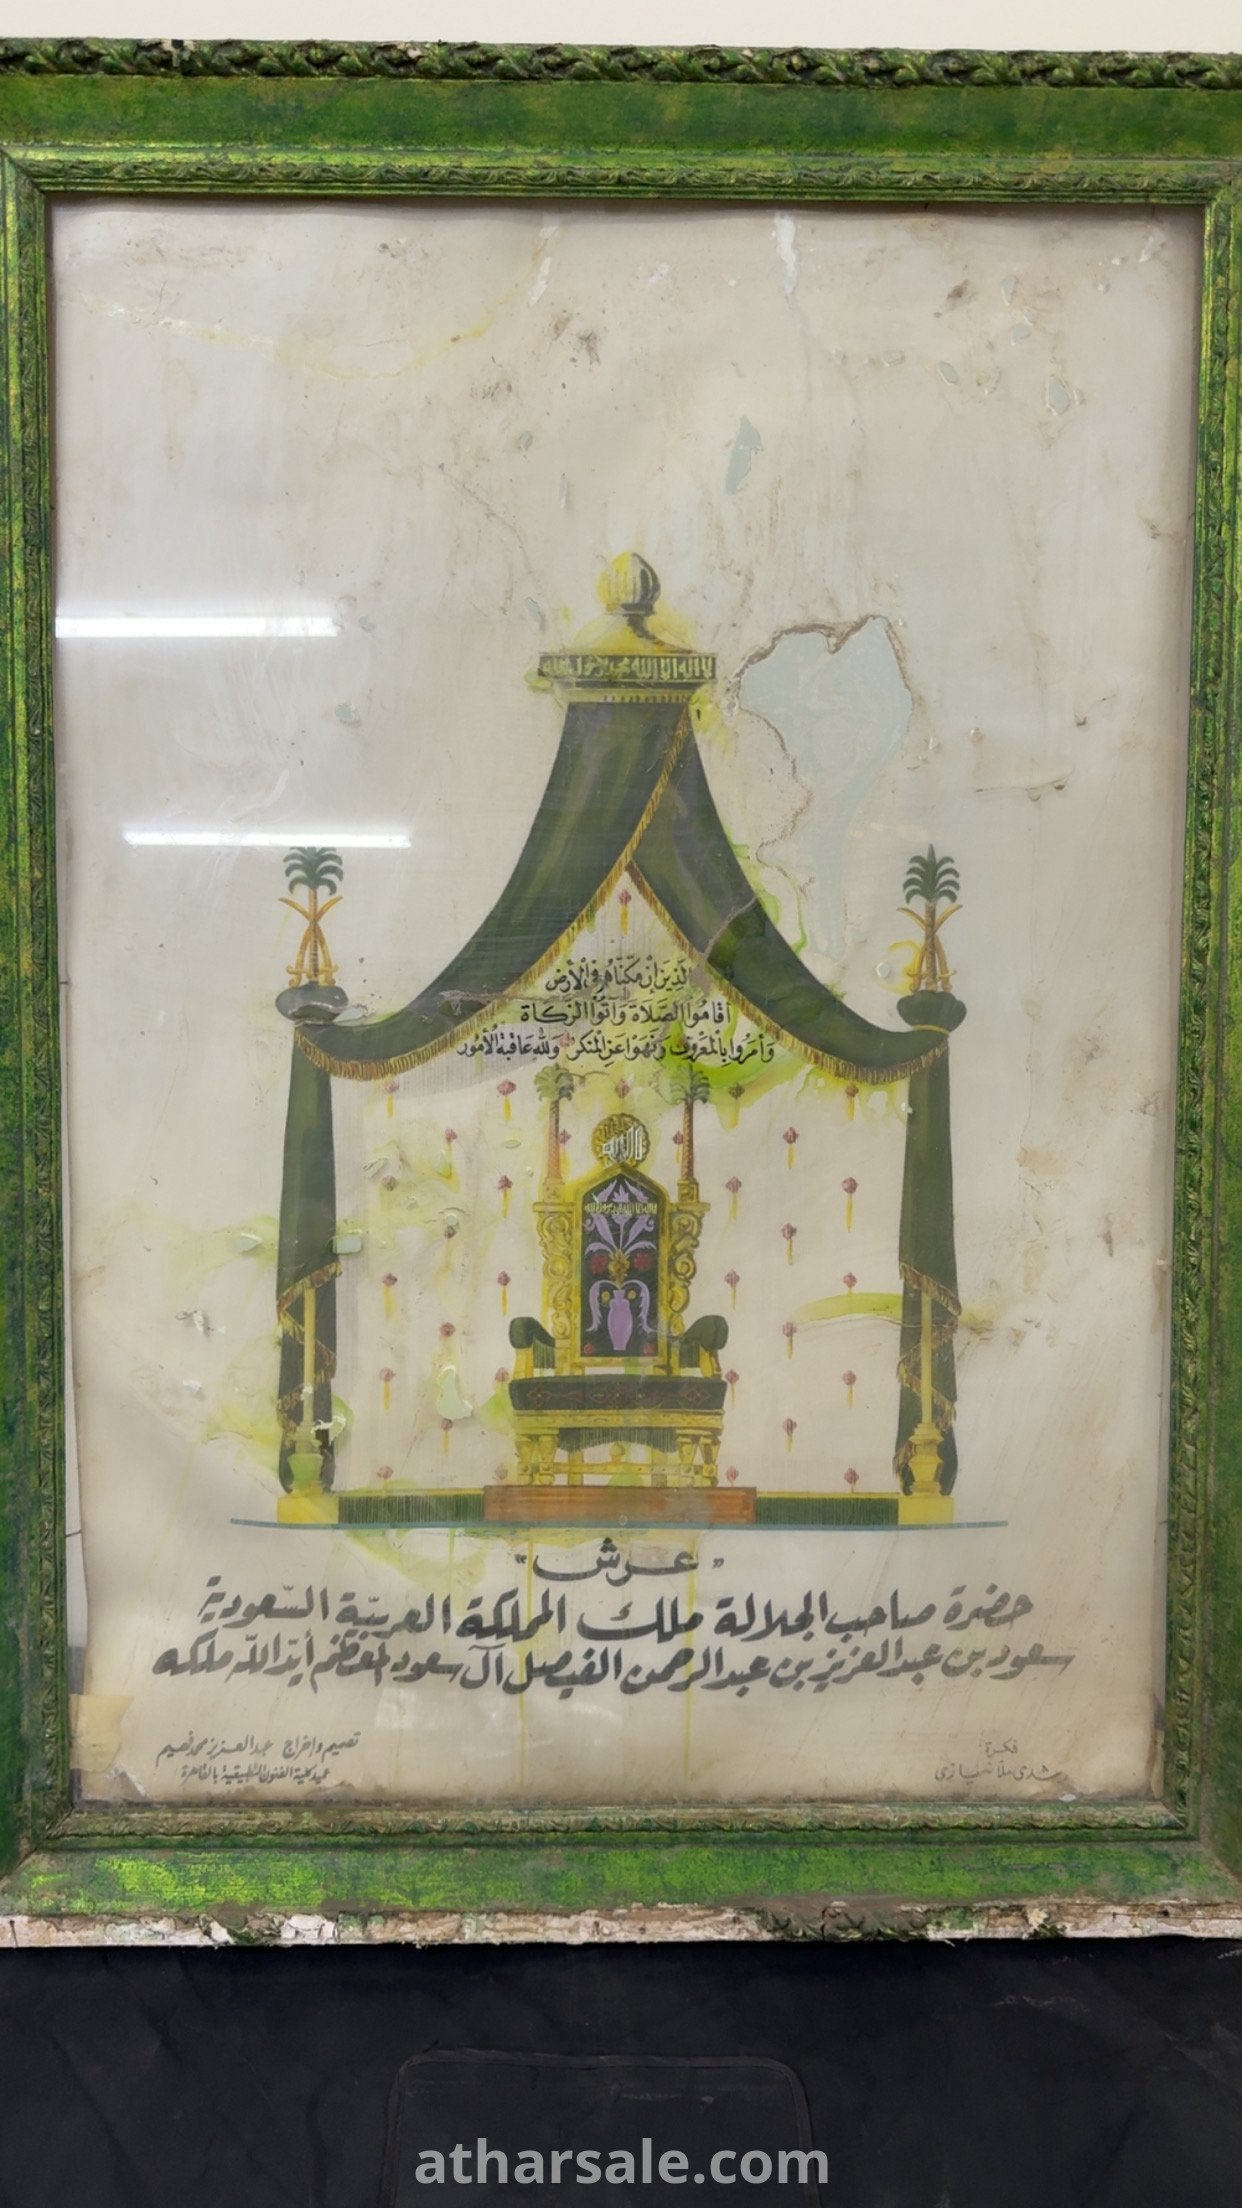 لا اله الا الله محمد رسول الله
الَّذِينَ إِنْ مَكَّنَّاهُمْ فِي الْأَرْضِ
أَقَامُوا الصَّلَاةَ وَآتَوُا الزَّكَاةَ
وَأَمَرُوا بِالْمَعْرُوفِ وَنَهَوْا عَنِ الْمُنْكَرِ وَلِلَّهِ عَاقِبَةُ الْأُمُورِ
"عرش"
حضرة صاحب الجلالة ملك المملكة العربيّة السّعودية
سعود بن عبد العزيز بن عبد الرحمن الفيصل آل سعود المعظم أيّد اللّه ملكه
فكرة
رشدي ملا نيازي
تصميم وإخراج عبد العزيز محمد فهيم
عميد كلية الفنون التطبيقية بالقاهرة
atharsale.com